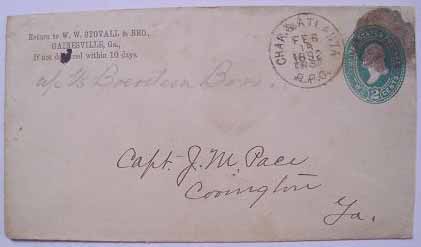 Return to W. W. STOVALL & BRO.
GAINESVILLE, GA.,
If not delivered within 10 days.
CHAR. & ATLANTA
FEB
R.P.O.
2 CENTS
Capt. J. M. Pace
Covington
Ga.